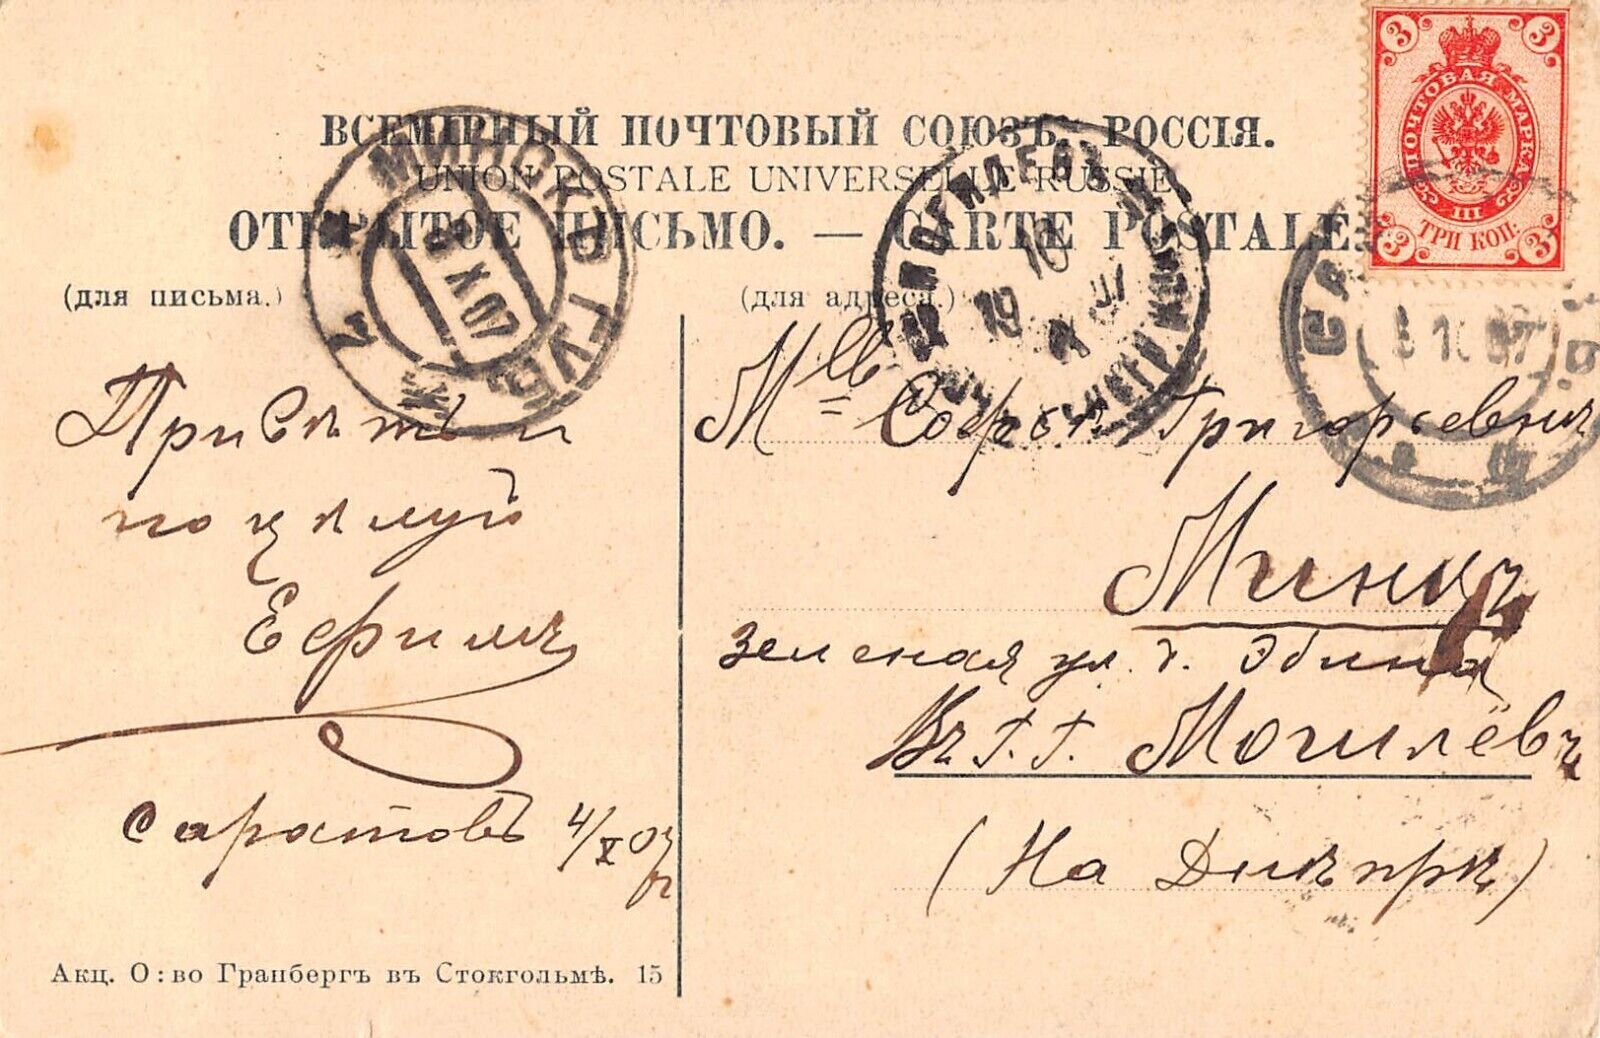 ВСЕМІРНЫЙ ПОЧТОВЫЙ СОЮЗЪ. РОССІЯ.
UNION POSTALE UNIVERSELLE RUSSIE
ОТКРЫТОЕ ПИСЬМО. — CARTE POSTALE.
(для письма.)
(для адреса.)
3 3
ПОЧТОВАЯ МАРКА
III
ТРИ КОП:
3 3
МИНСКЪ ГУБ.
X 07
2
МОГИЛЕВЪ
10
19
10 07
Привѣтъ и
поцѣлуй
Ефимъ
Саратовъ 4/X 07 г
M lle Софья Григорьевнъ
Минцъ
Зеленая ул. д. Эбина
Въ г. г. Могилёвъ
(На Днѣпрѣ)
Акц. О:во Гранбергъ въ Стокгольмѣ. 15